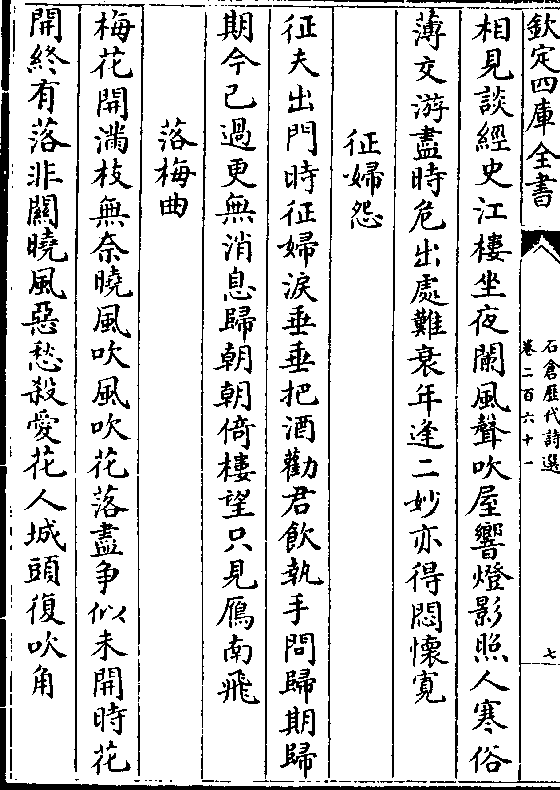 欽定四庫全書
石倉歷代詩選
卷二百六十一
七
相見談經史江樓坐夜闌風聲吹屋響燈影照人寒俗
薄交游盡時危出處難衰年逢二妙亦得悶懷寛
征婦怨
征夫出門時征婦淚垂垂把酒勸君飲執手問歸期歸
期今已過更無消息歸朝朝倚樓望只見鴈南飛
落梅曲
梅花開滿枝無奈曉風吹風吹花落盡争似未開時花
開終有落非闗曉風惡愁殺愛花人城頭復吹角